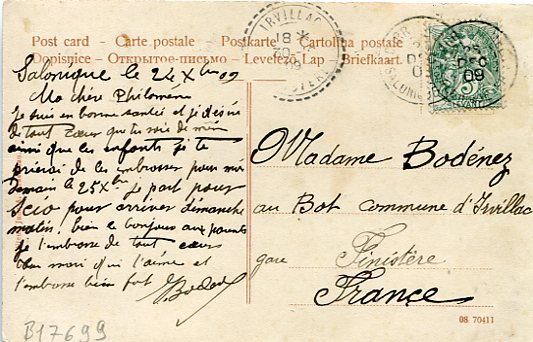 Post card - Carte postale - Postkarte - Cartolina postale
Dopisnice - Открытое-письмо - Levelező Lap - Briefkaart.
IRVILLAC
18 *
30-12
09
FINISTERE
DEC
09
SALONIQUE
5
LEVANT
Salonique le 24 Xbre 09
Ma chère Philomène
Je suis en bonne santé et je désire
de tout cœur que tu sois de même
ainsi que les enfants je te
prierai de les embrasser pour moi
demain le 25 Xbre Je part pour
Scio pour arriver dimanche
matin. bien le bonjour aux parents
je t'embrasse de tout cœur
ton mari qui t'aime et
t'embrasse bien fort
Madame Bodénez
au Bot commune d'Irvillac
gare Finistère
France
08 70411
B17699